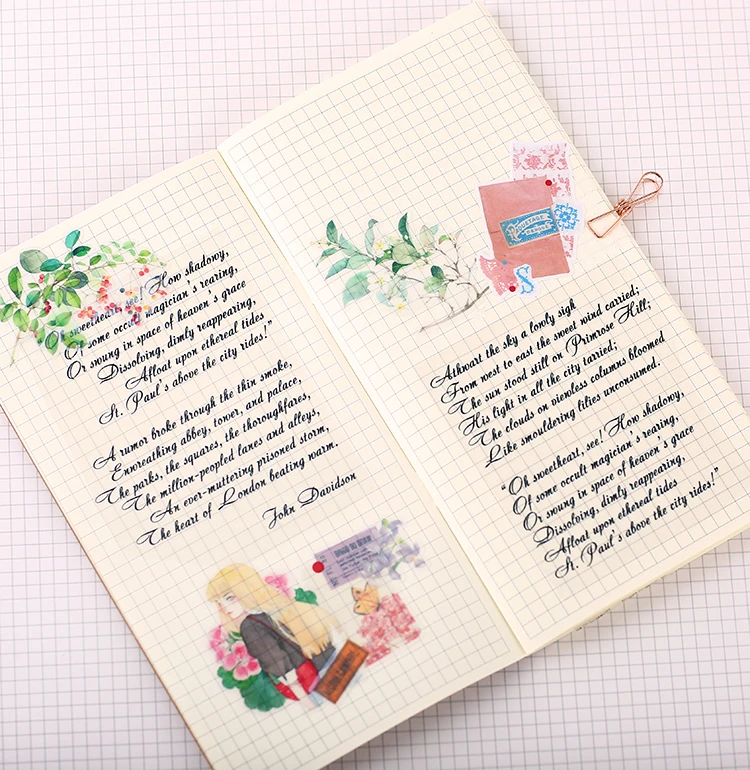 Oh sweetheart, see! How shadowy,
Of some occult magician's rearing,
Or swung in space of heaven's grace
Dissolving, dimly reappearing,
Afloat upon ethereal tides
St. Paul's above the city rides!"
A rumor broke through the thin smoke,
Enwreathing abbey, tower, and palace,
The parks, the squares, the thoroughfares,
The million-peopled lanes and alleys,
An ever-muttering prisoned storm,
The heart of London beating warm.
John Davidson
POSTAGE
S
Athwart the sky a lowly sigh
From west to east the sweet wind carried;
The sun stood still on Primrose Hill;
His light in all the city tarried;
The clouds on viewless columns bloomed
Like smouldering lilies unconsumed.
"Oh sweetheart, see! How shadowy,
Of some occult magician's rearing,
Or swung in space of heaven's grace
Dissolving, dimly reappearing,
Afloat upon ethereal tides
St. Paul's above the city rides!"